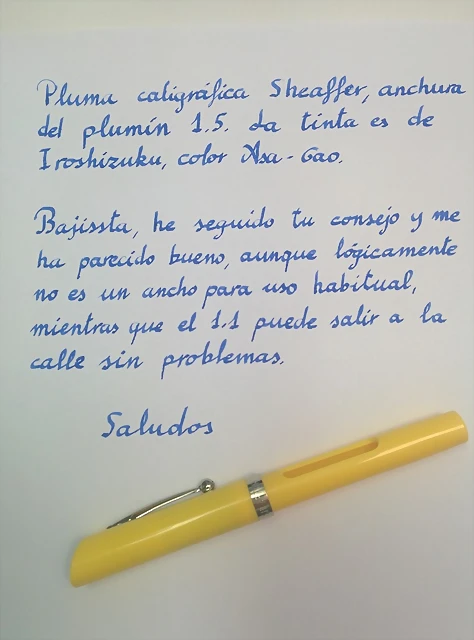 Pluma caligráfica Sheaffer, anchura
del plumín 1.5. La tinta es de
Iroshizuku, color Asa-Gao.
Bajissta, he seguido tu consejo y me
ha parecido bueno, aunque lógicamente
no es un ancho para uso habitual,
mientras que el 1.1 puede salir a la
calle sin problemas.
Saludos